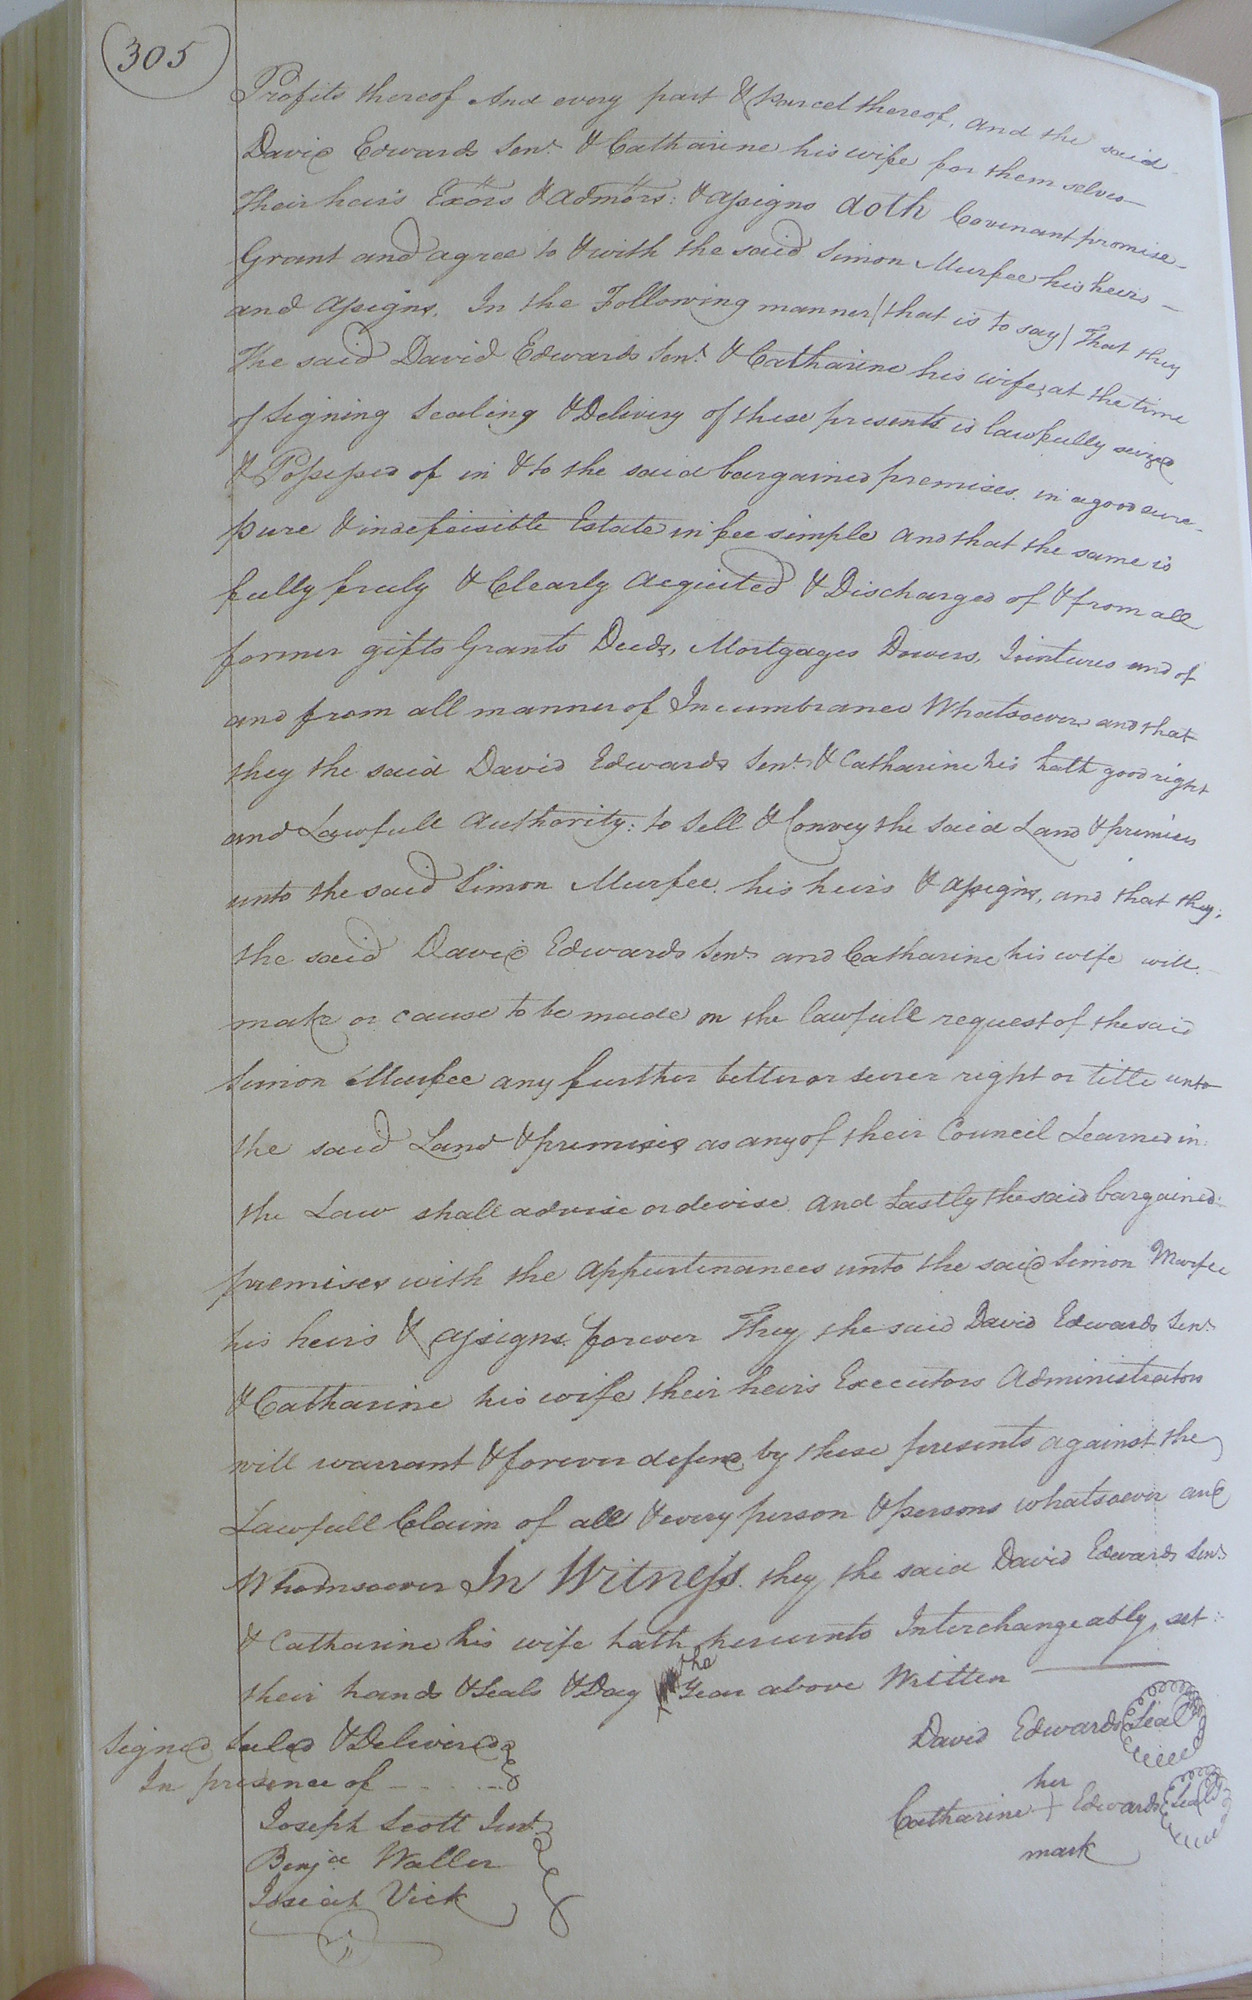 305
Profits thereof And every part & parcel thereof, and the said
David Edwards Senr. & Catharine his wife for themselves
Their heirs Exōrs & admōrs: & assigns doth Covenant promise
Grant and agree to & with the said Simon Murfee his heirs
and assigns, In the Following manner (that is to say) That they
The said David Edwards Senr. & Catharine his wife, at the time
of Signing Sealing & Delivery of these presents is lawfully seized
& Possessed of in & to the said bargained premises, in a good sure
pure & indefeisible Estate in fee simple and that the same is
fully freely & Clearly acquited & Discharged of & from all
former gifts Grants Deeds, Mortgages Dowers, Jointures and of
and from all manner of Incumbrance Whatsoever and that
they the said David Edwards Senr. & Catharine his hath good right
and Lawfull Authority: to Sell & Convey the said Land & premises
unto the said Simon Murfee. his heirs & assigns, and that they:
the said David Edwards Senr and Catharine his wife will
make or cause to be made on the lawfull request of the said
Simon Murfee any further better or surer right or title unto
the said Land & premises as any of their Council Learned in
the Law shall advise or devise. and Lastly the said bargained
premises with the appurtenances unto the said Simon Murfee
his heirs & assigns forever They the said David Edwards Senr
& Catharine his wife their heirs Executors Administrators
will warrant & forever defend by these presents against the
Lawfull Claim of all & every person & persons whatsoever and
Whomsoever In Witness. they the said David Edwards Senr
& Catharine his wife hath hereunto Interchangeably, set
their hands & Seals & Day the Year above Written
David Edwards Seal
Signed Sealed & Delivered
In presence of
her
Catharine + Edwards Seal
mark
Joseph Scott Junr.
Benja Waller
Josiah Vick